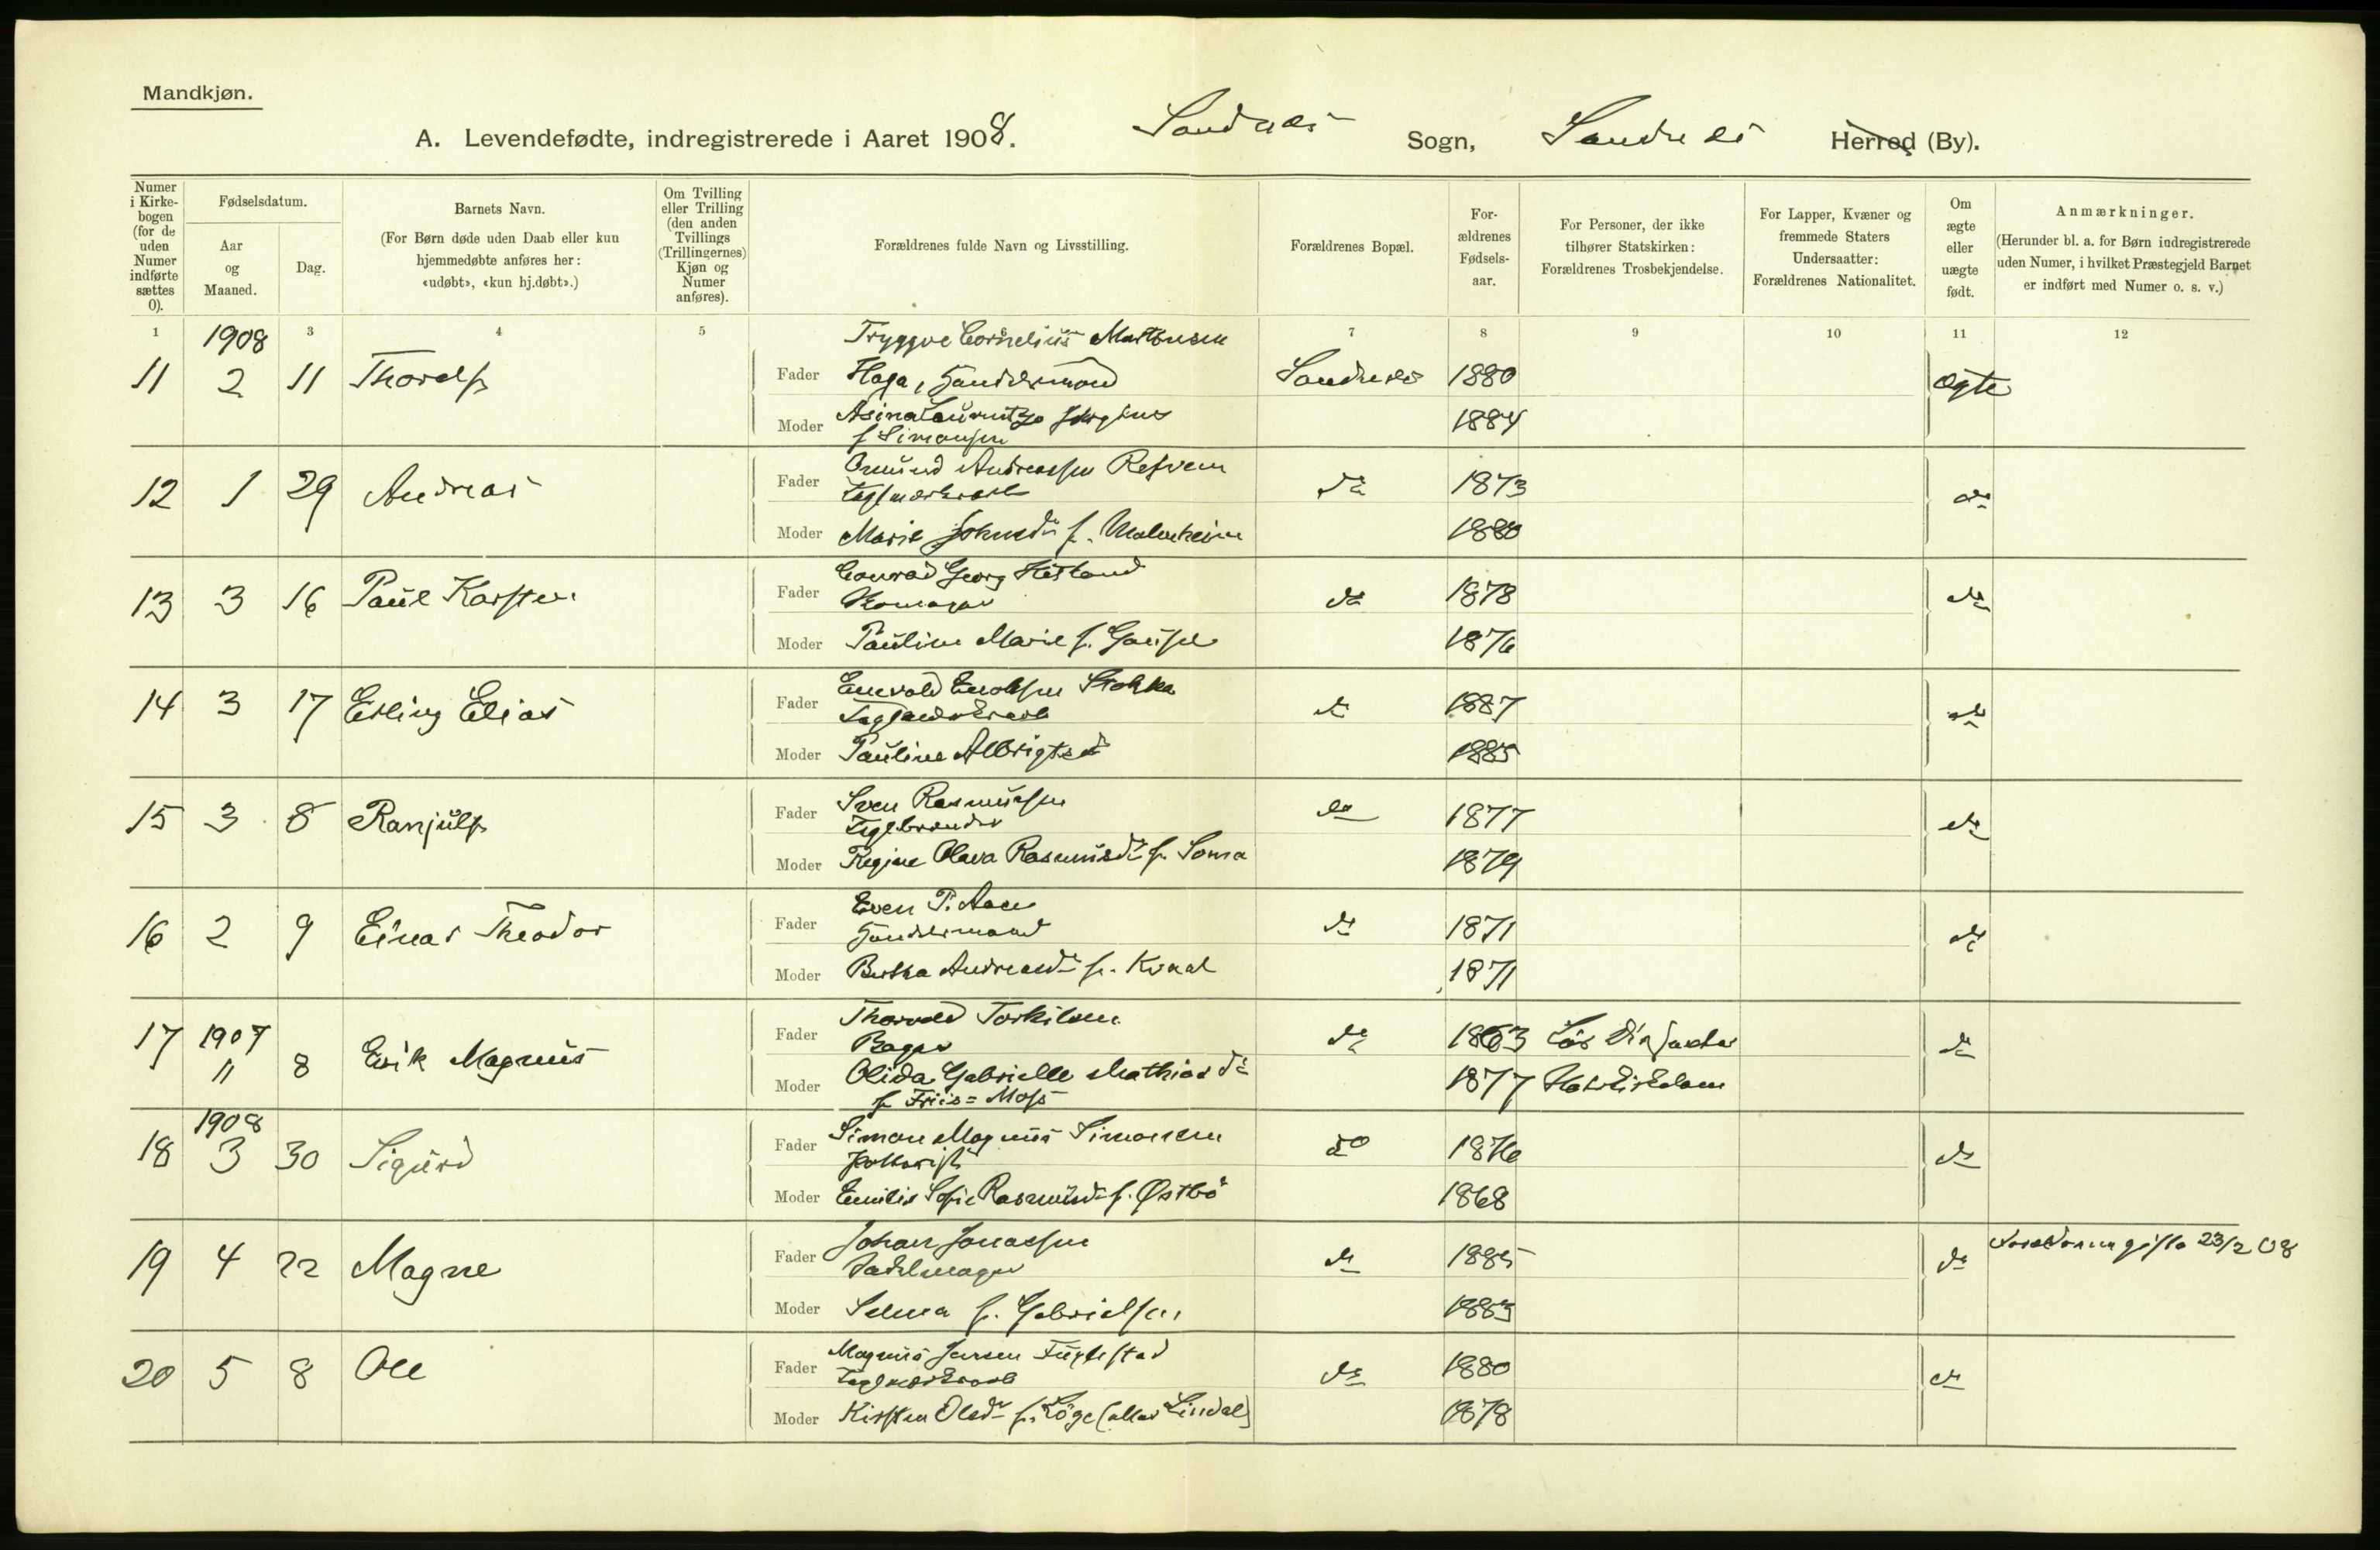 Mandkjøn.
A. Levendefødte, indregistrerede i Aaret 1908. Sandnæs Sogn, Sandnæs Herred (By).
Numer i Kirkebogen (for de uden Numer indførte sættes 0).
Fødselsdatum.
Aar og Maaned.
Dag.
Barnets Navn.
(For Børn døde uden Daab eller kun hjemmedøbte anføres her: «udøbt», «kun hj.døbt».)
Om Tvilling eller Trilling (den anden Tvillings (Trillingernes) Kjøn og Numer anføres).
Forældrenes fulde Navn og Livsstilling.
Forældrenes Bopæl.
Forældrenes Fødselsaar.
For Personer, der ikke tilhører Statskirken: Forældrenes Trosbekjendelse.
For Lapper, Kvæner og fremmede Staters Undersaatter: Forældrenes Nationalitet.
Om ægte eller uægte født.
Anmærkninger.
(Herunder bl. a. for Børn indregistrerede uden Numer, i hvilket Præstegjeld Barnet er indført med Numer o. s. v.)
1 3 4 5 7 8 9 10 11 12
1908
Tryggve Cornelius Martensen
11 2 11 Thorolf Fader Haga, Handelsmand Sandnæs 1880 ægte
Moder Asina 1884
f Simonsen
Omund Andreassen Refvem
12 1 29 Andreas Fader do 1873 do
Moder Marie Johnsdtr f. Malmheim 1880
Conrad Georg Hetland
13 3 16 Paul Karsten Fader Skomager do 1878 do
Moder Pauline Marie f. Gausel 1876
Enevold Enoksen Stokka
14 3 17 Erling Elias Fader do 1887 do
Moder Pauline Albrigtsd 1885
Sven Rasmussen
15 3 8 Ranjulf Fader Teglbrænder do 1877 do
Moder Regine Olava Rasmusdtr f. Soma 1879
Even P. Aase
16 2 9 Einar Theodor Fader Handelsmand do 1871 do
Moder Bertha Andreasdtr f. Kvaal 1871
Thorvald Torkilsen
17 1907 11 8 Erik Magnus Fader Bager do 1863 do
Moder Olida Gabrielle Mathiasdtr 1877
f Friis = Moss
1908
Simon Magnus Simonsen
18 3 30 Sigurd Fader do 1876 do
Moder Emilie Sofie Rasmusdtr f. Østbö 1868
Johan Jonassen
19 4 22 Magne Fader Sadelmager do 1885 do 23/2 08
Moder Selma f. Gabrielsen 1883
Magnus Jensen Fuglestad
20 5 8 Ole Fader do 1880 do
Moder Kirsten Olsdtr f. Löge (eller Lindal) 1878